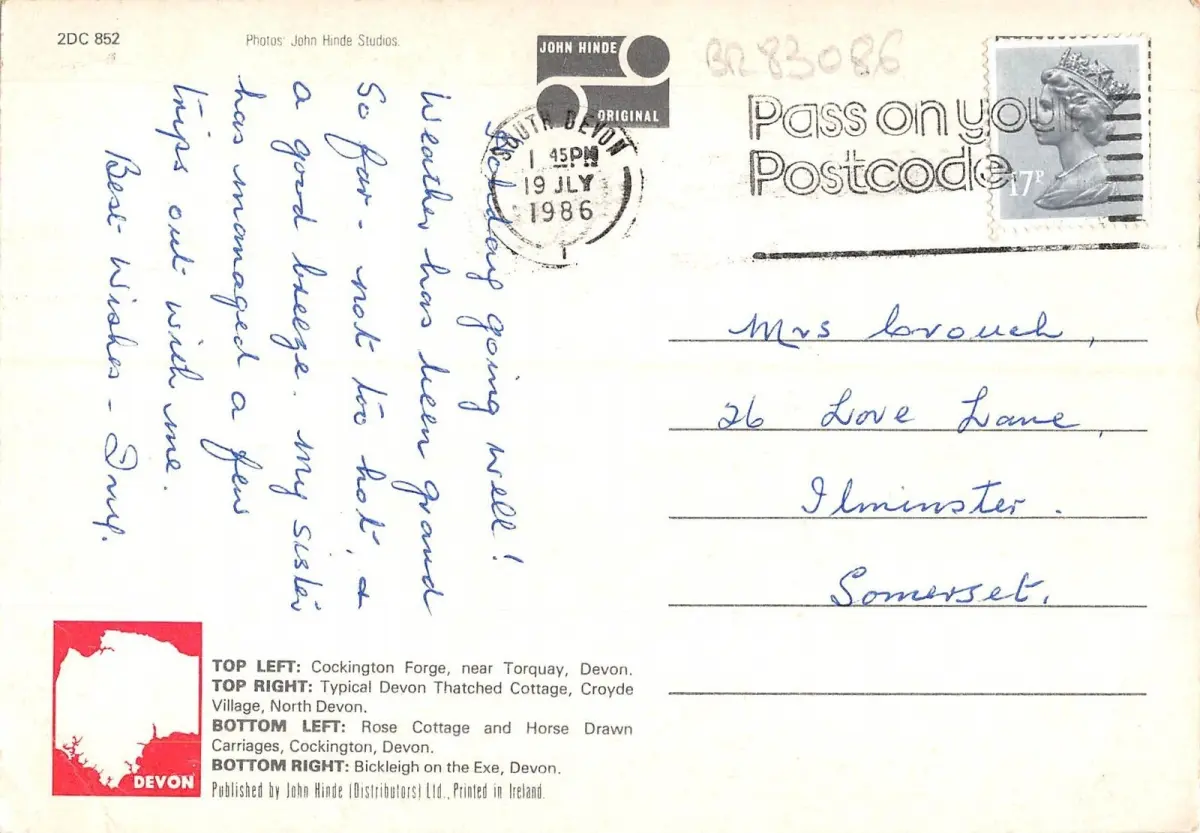 2DC 852
Photos: John Hinde Studios.
JOHN HINDE
ORIGINAL
BR83086
SOUTH DEVON
1 45PM
19 JLY
1986
Pass on your
Postcode
17P
Holiday going well!
Weather has been grand
So far - not too hot, &
a good breeze. My sister
has managed a few
trips out with me.
Best Wishes -
Mrs Crouch,
26 Love Lane,
Ilminster.
Somerset.
DEVON
TOP LEFT: Cockington Forge, near Torquay, Devon.
TOP RIGHT: Typical Devon Thatched Cottage, Croyde
Village, North Devon.
BOTTOM LEFT: Rose Cottage and Horse Drawn
Carriages, Cockington, Devon.
BOTTOM RIGHT: Bickleigh on the Exe, Devon.
Published by John Hinde (Distributors) Ltd., Printed in Ireland.